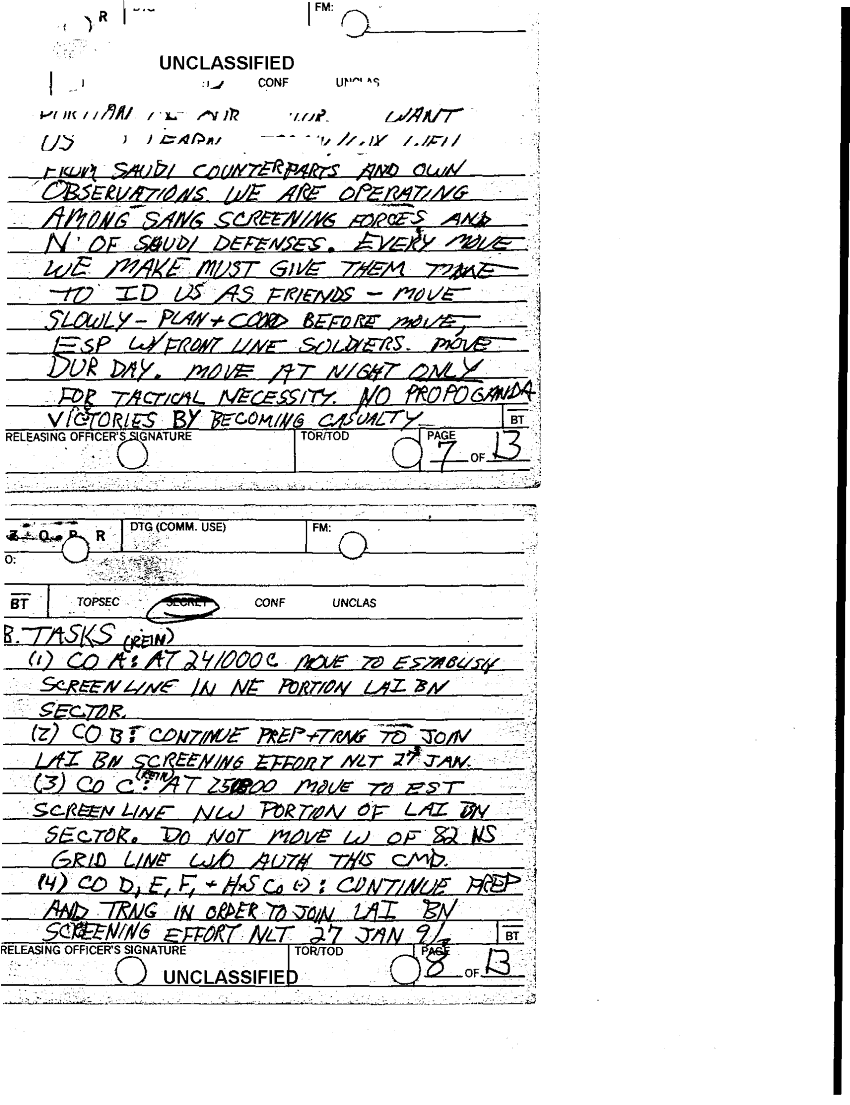 R FM:
UNCLASSIFIED
CONF UNCLAS
WANT
US
FROM SAUDI COUNTERPARTS AND OWN
OBSERVATIONS. WE ARE OPERATING
AMONG SANG SCREENING FORCES AND
N OF SAUDI DEFENSES. EVERY MOVE
WE MAKE MUST GIVE THEM TIME
TO ID US AS FRIENDS - MOVE
SLOWLY - PLAN + COORD BEFORE MOVE,
ESP W/FRONT LINE SOLDIERS. MOVE
DUR DAY. MOVE AT NIGHT ONLY
FOR TACTICAL NECESSITY. NO PROPOGANDA
VICTORIES BY BECOMING CASUALTY
BT
RELEASING OFFICER'S SIGNATURE TOR/TOD PAGE
7 OF 13
Z O P R DTG (COMM. USE) FM:
O:
BT TOPSEC SECRET CONF UNCLAS
B. TASKS (REIN)
(1) CO A: AT 241000C MOVE TO ESTABLISH
SCREEN LINE IN NE PORTION LAI BN
SECTOR.
(2) CO B: CONTINUE PREP + TRNG TO JOIN
LAI BN SCREENING EFFORT NLT 27 JAN.
(3) CO C (REIN): AT MOVE TO EST
SCREEN LINE NW PORTION OF LAI BN
SECTOR. DO NOT MOVE W OF 82 NS
GRID LINE W/O AUTH THIS CMD.
(4) CO D, E, F, + H+S CO (-): CONTINUE PREP
AND TRNG IN ORDER TO JOIN LAI BN
SCREENING EFFORT NLT 27 JAN 91
BT
RELEASING OFFICER'S SIGNATURE TOR/TOD PAGE
UNCLASSIFIED 8 OF 13